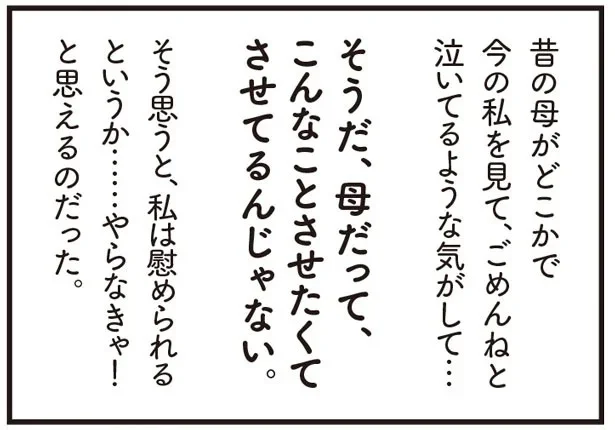 昔の母がどこかで
今の私を見て、ごめんねと
泣いてるような気がして…
そうだ、母だって、
こんなことさせたくて
させてるんじゃない。
そう思うと、私は慰められる
というか……やらなきゃ！
と思えるのだった。